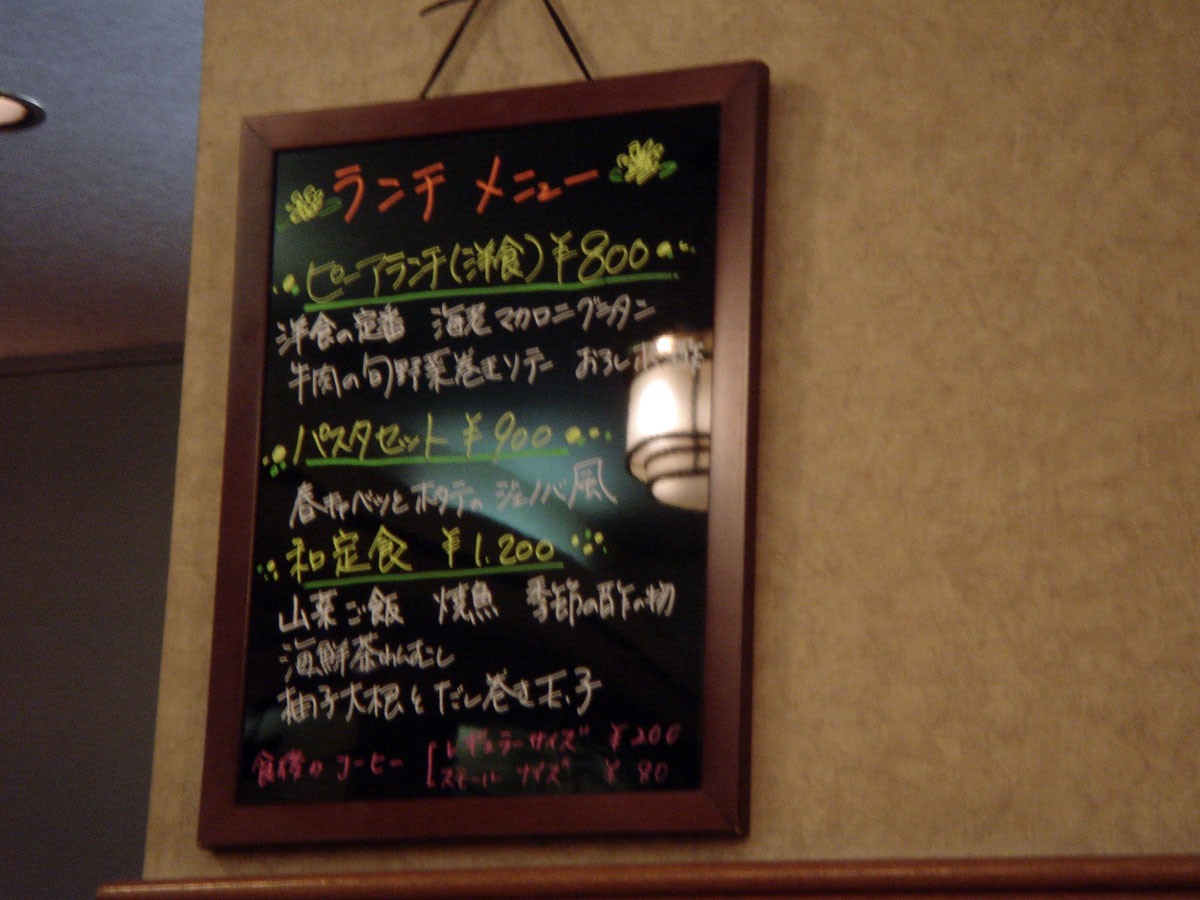 ランチ メニュー
ピュアランチ(洋食)¥800
洋食の定番 海老マカロニグラタン
牛肉の旬野菜巻きソテー おろしポン酢
パスタセット ¥900
春キャベツとホタテのジェノバ風
和定食 ¥1.200
山菜ご飯 焼魚 季節の酢の物
海鮮茶わんむし
柚子大根とだし巻き玉子
食後のコーヒー [レギュラーサイズ ¥200
スモールサイズ ¥80